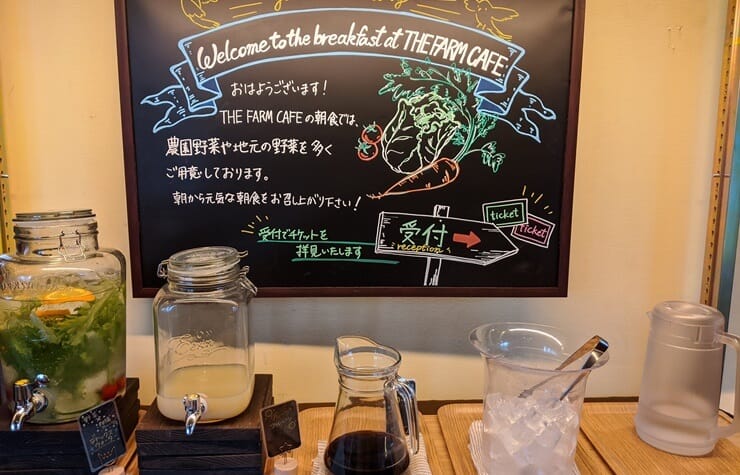 Welcome to the breakfast at THE FARM CAFE
おはようございます！
THE FARM CAFE の朝食では、
農園野菜や地元の野菜を多く
ご用意しております。
朝から元気な朝食をお召し上がり下さい！
受付でチケットを
拝見いたします
受付
reception
ticket
ticket